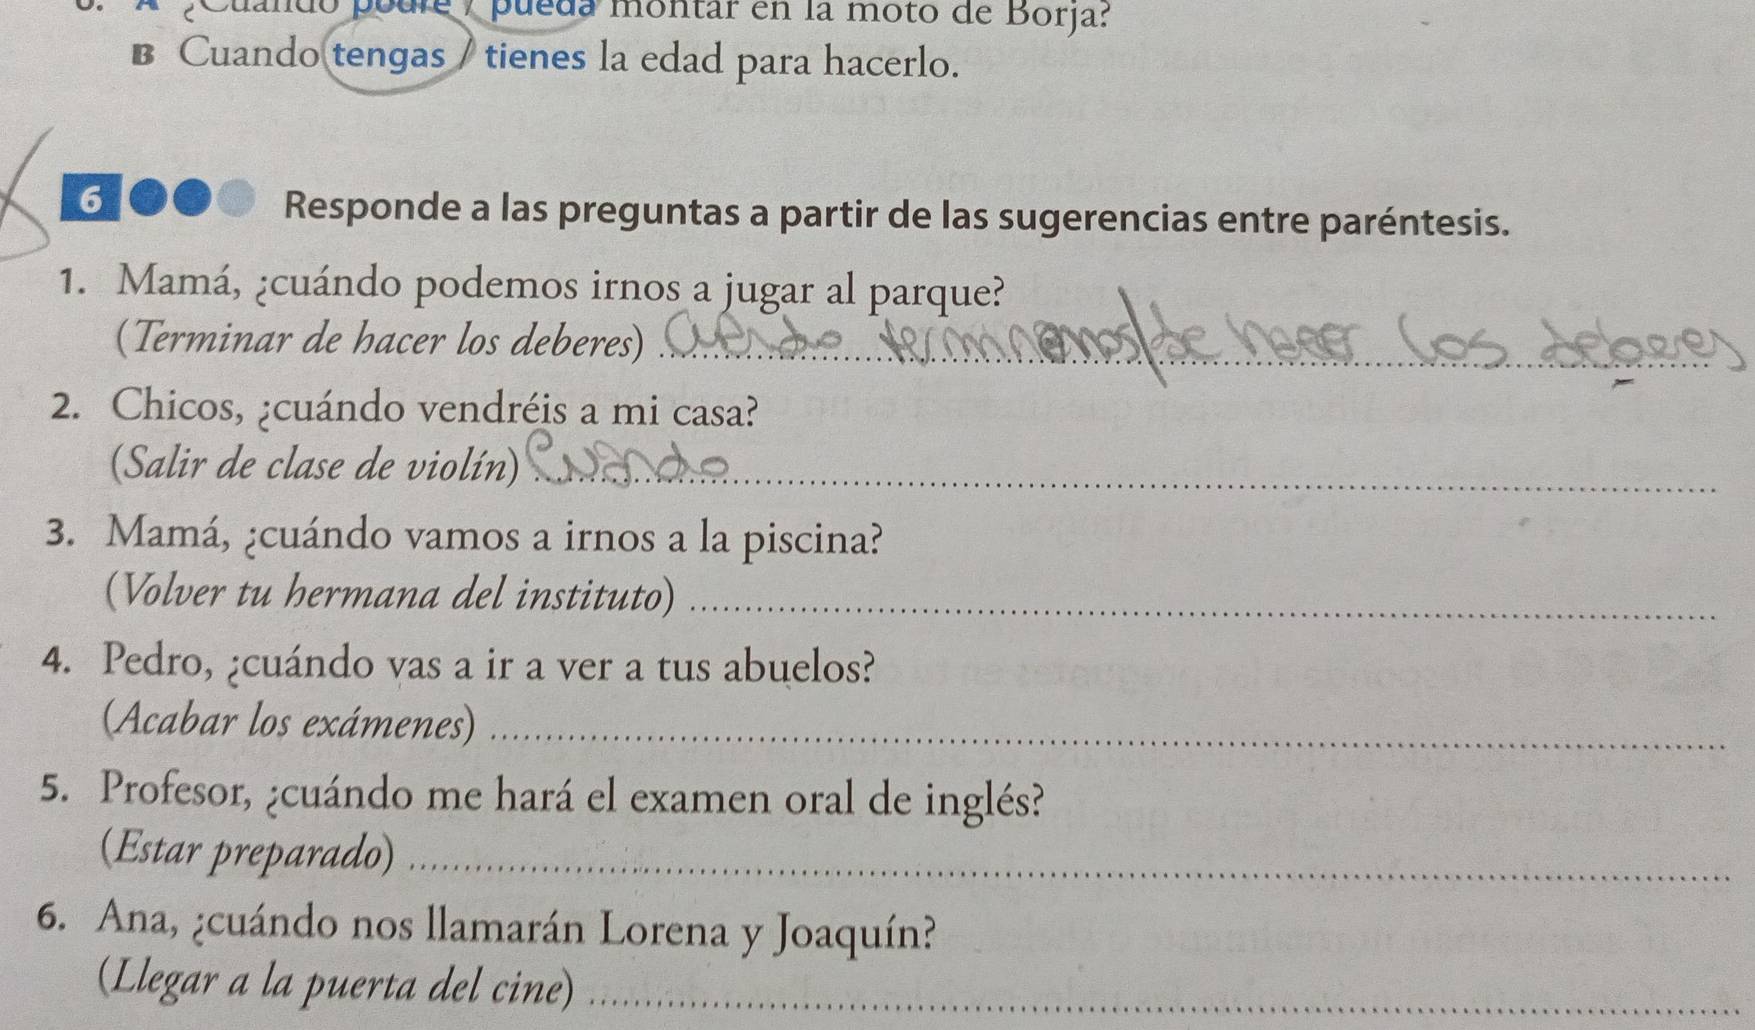 ¿Cuándo podré / pueda montar en la moto de Borja?
B Cuando tengas / tienes la edad para hacerlo.
6 Responde a las preguntas a partir de las sugerencias entre paréntesis.
1. Mamá, ¿cuándo podemos irnos a jugar al parque?
(Terminar de hacer los deberes) los deberes
2. Chicos, ¿cuándo vendréis a mi casa?
(Salir de clase de violín) Cuando
3. Mamá, ¿cuándo vamos a irnos a la piscina?
(Volver tu hermana del instituto)
4. Pedro, ¿cuándo vas a ir a ver a tus abuelos?
(Acabar los exámenes)
5. Profesor, ¿cuándo me hará el examen oral de inglés?
(Estar preparado)
6. Ana, ¿cuándo nos llamarán Lorena y Joaquín?
(Llegar a la puerta del cine)